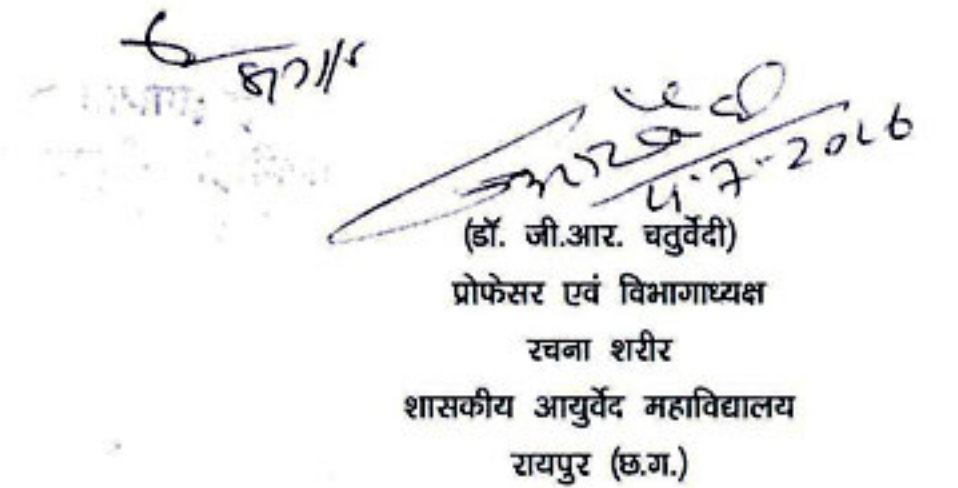 4.7.2016
(डॉ. जी.आर. चतुर्वेदी)
प्रोफेसर एवं विभागाध्यक्ष
रचना शरीर
शासकीय आयुर्वेद महाविद्यालय
रायपुर (छ.ग.)